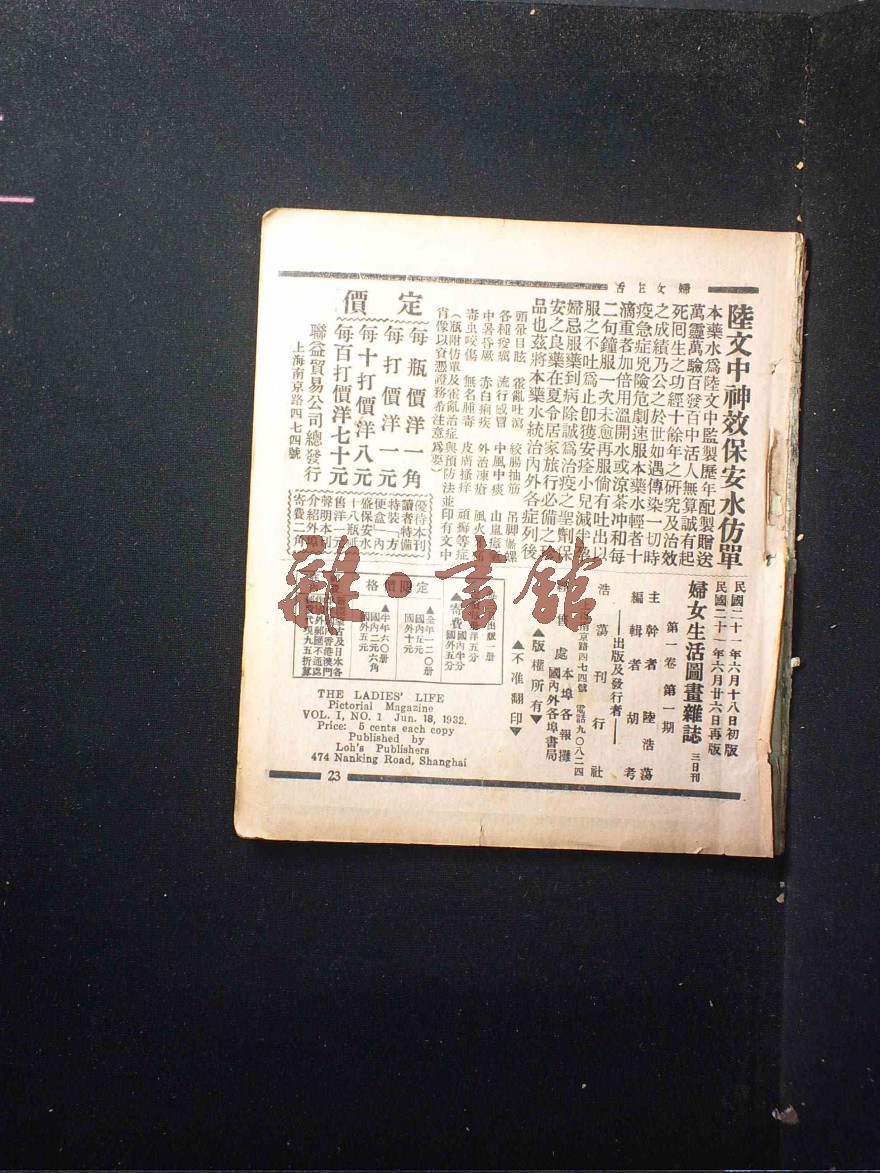 婦女生活
陸文中神效保安水仿單
本藥水爲陸文中監製歷年配製贈送
萬靈萬驗百發百中活人無算誠有起
死回生之功經十餘年之研究及治效
之成績乃公之於世如遇傳染一切時
疫急症兇險危劇速服本藥水輕者十
滴重者加倍用溫開水或涼茶冲和每
二句鐘服一次未愈再服倘有吐出以
服之不吐爲止卽獲安痊小兒減半孕
婦忌服藥到病除誠爲治疫之聖劑保
安之良藥在夏令居家旅行必備之珍
品也茲將本藥水統治內外各症列後
頭暈目眩 霍亂吐瀉 絞腸抽筋 吊脚癟螺
各種痧癘 流行感冒 中風中痰 山嵐瘴
中暑昏厥 赤白痢疾 外治凍瘡 風火
毒虫咬傷 無名腫毒 皮膚搔痒 頑癬等症
(瓶附仿單及霍亂治症與預防法並印有文中
肖像以資憑證務希注意爲要)
定價
每瓶價洋一角
每打價洋一元
每十打價洋八元
每百打價洋七十元
聯益貿易公司總發行
上海南京路四七四號
優待本刊
讀者特備
特裝「方
便盒」內
盛保安水
十八瓶
售洋一
聲明本刊
介紹外埠
寄費二角
民國二十一年六月十八日初版
民國二十一年六月廿六日再版
婦女生活圖畫雜誌 三日刊
第一卷 第一期
主幹者 陸浩蕩
編輯者 胡考
——出版及發行者——
浩蕩刊行社
上海南京路四七四號 電話九〇八二四
處 本埠各報攤
國內外各埠書局
▲版權所有▼
▲不准翻印▼
定價格
出版一册
洋五分
▲寄費 國內半分 國外五分
▲全年一二〇册
國內五元
國外十元
▲半年六〇册
國內二元六角
國外五元
古及日本各
香港澳門
郵匯不通處
代現九五折算
THE LADIES' LIFE
Pictorial Magazine
VOL. I, NO. 1 Jun. 18, 1932.
Price: 5 cents each copy
Published by
Loh's Publishers
474 Nanking Road, Shanghai
23
雜·書館